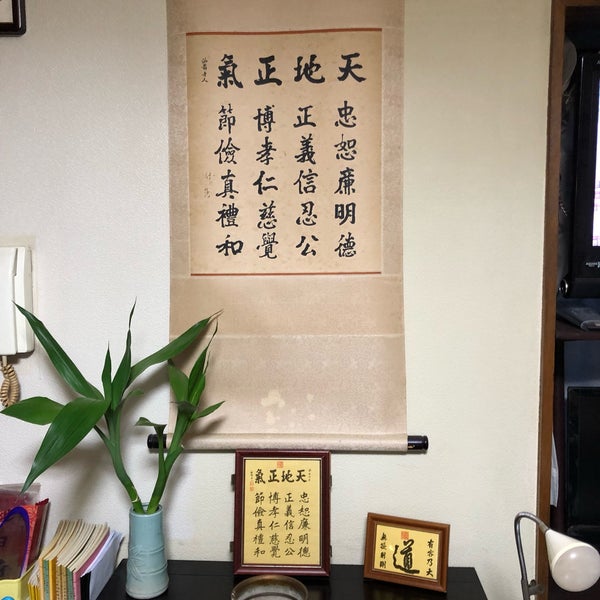 天地正氣
忠恕廉明德
正義信忍公
博孝仁慈覺
節儉真禮和
天地正氣
忠恕廉明德
正義信忍公
博孝仁慈覺
節儉真禮和
有容乃大
道
無欲則剛